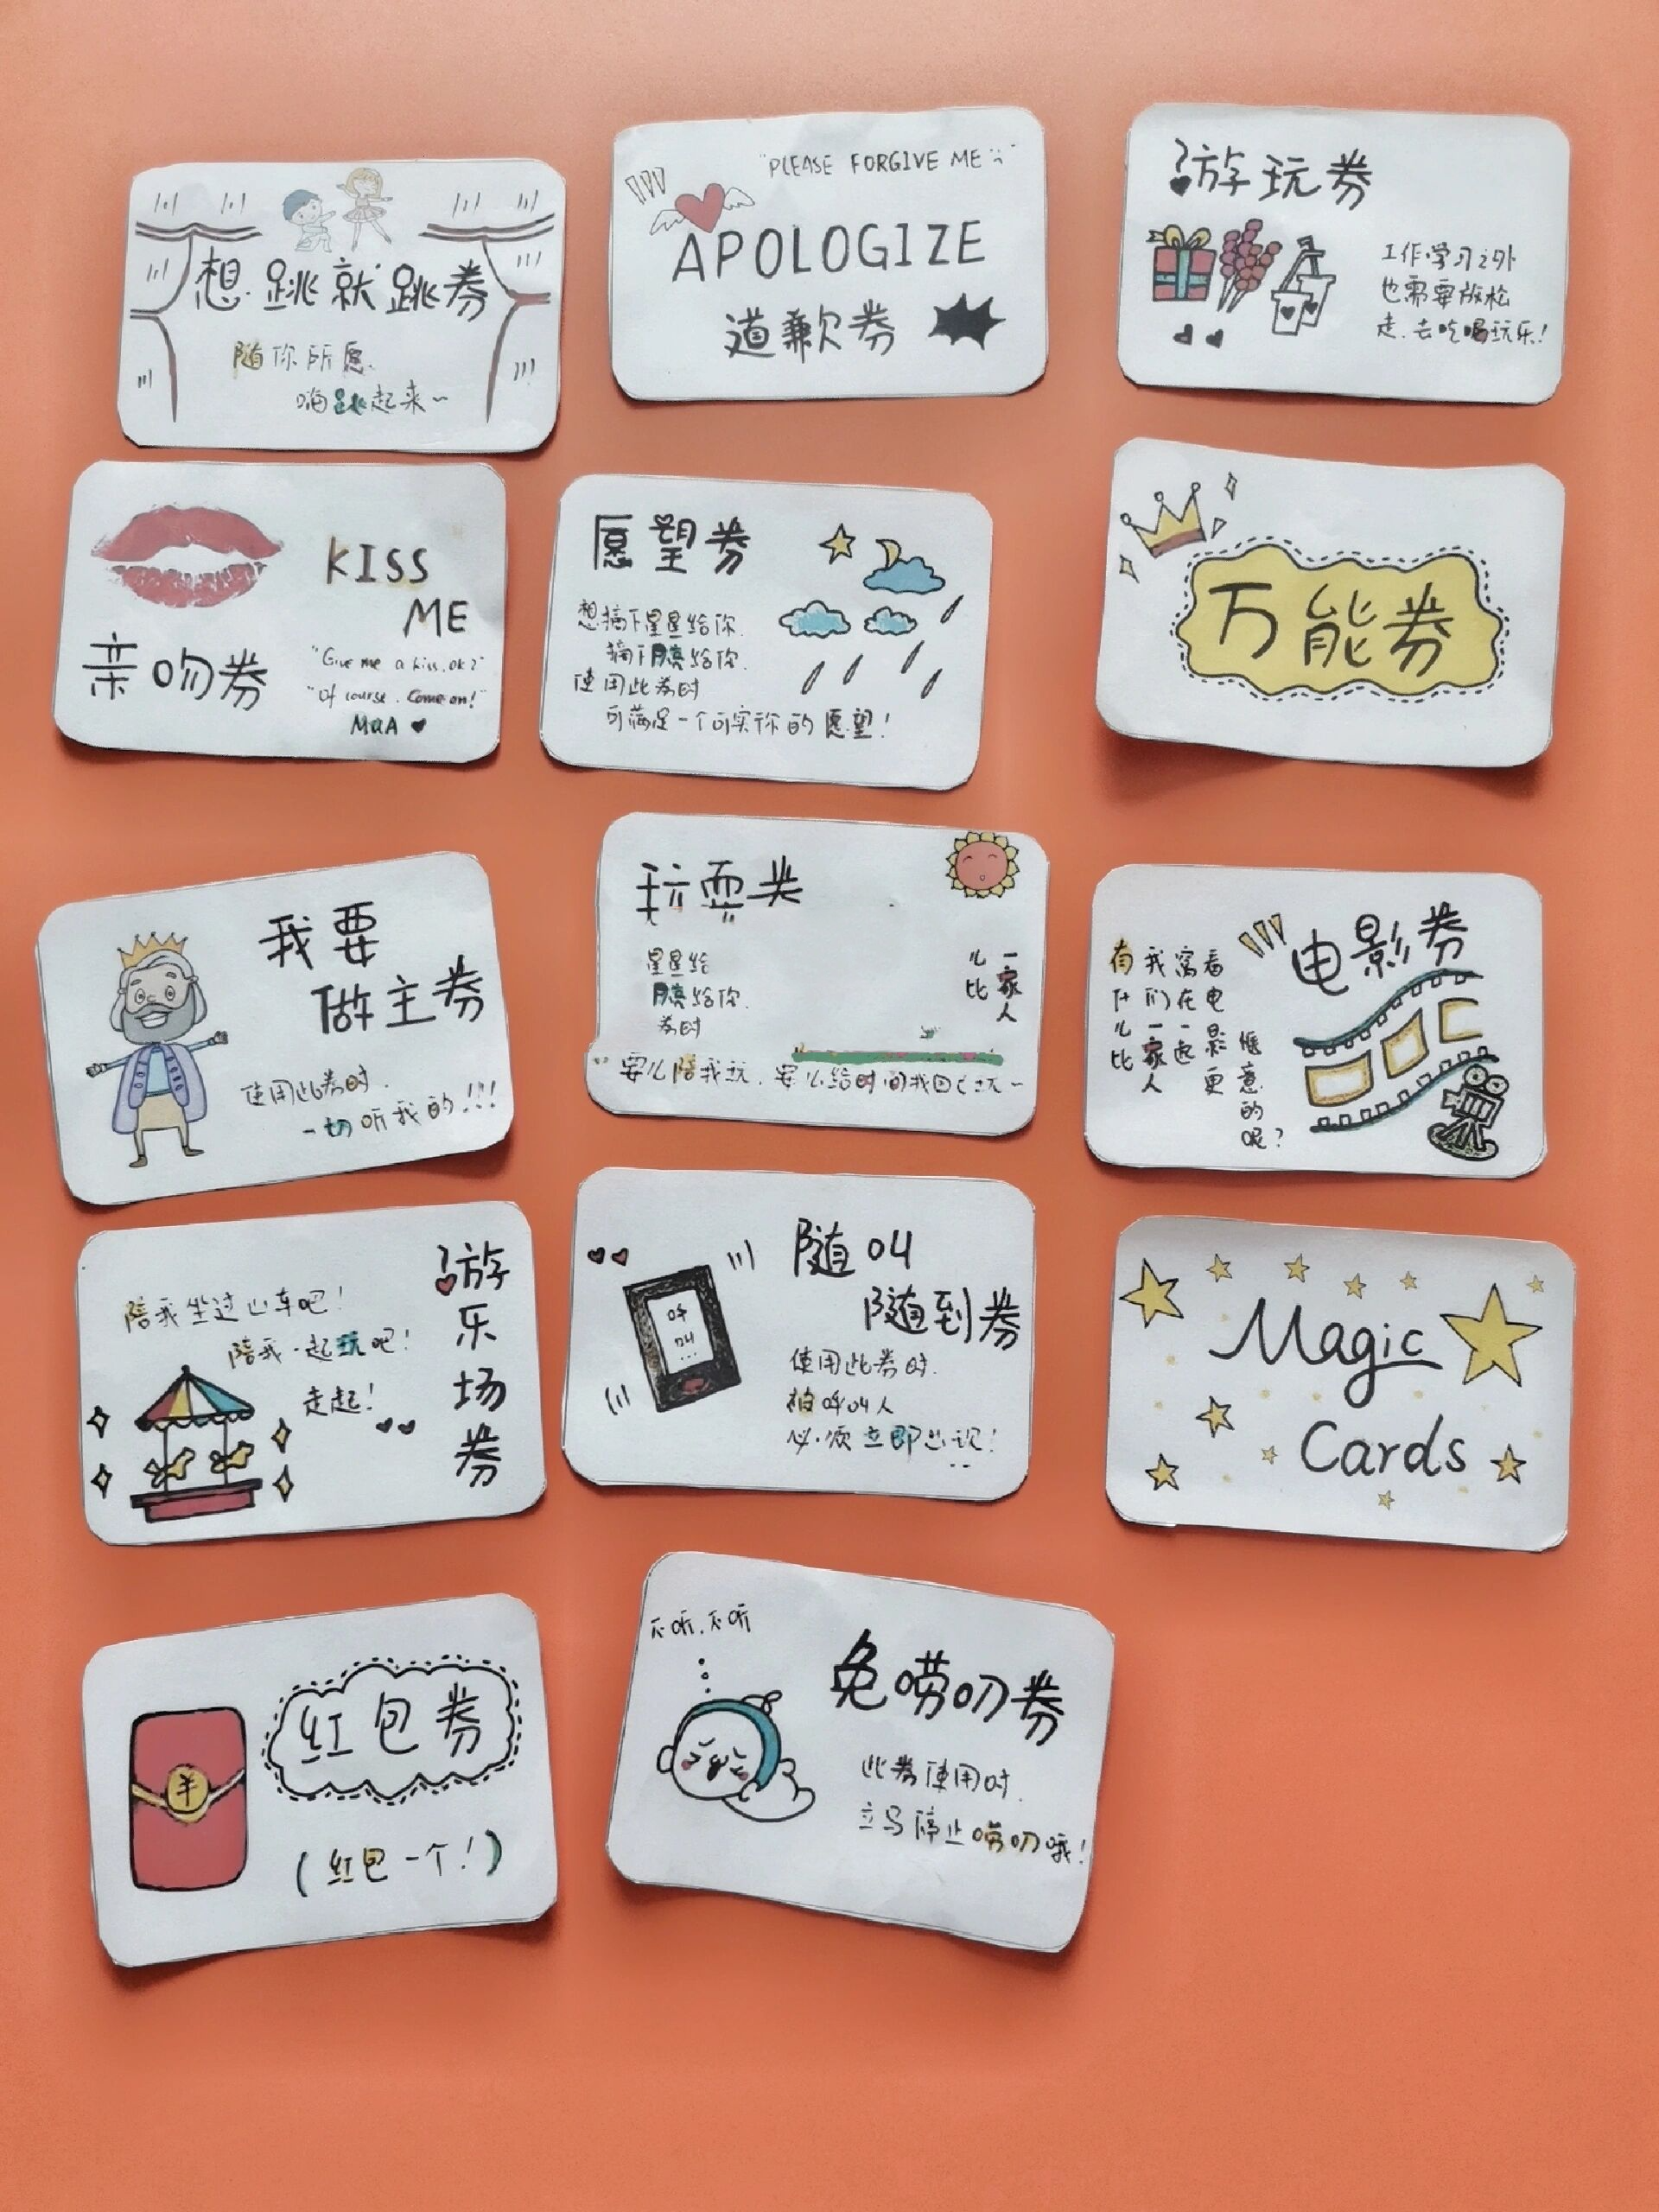 想跳就跳券
随你所愿.
嗨跳起来~
"PLEASE FORGIVE ME
APOLOGIZE
道歉券
游玩券
工作学习之外
也需要放松
走.去吃喝玩乐!
KISS
ME
亲吻券
"Give me a kiss.ok?"
"Of course. Come on!"
MUA
愿望券
想摘下星星给你.
摘下月亮给你.
使用此券时
可满足一个可实标的愿望!
万能券
我要
做主券
使用此券时.
一切听我的!!!
玩耍券
星星给
月亮给你.
券时
儿比
一家人
要么陪我玩.要么给时间我自己玩~
电影券
有什儿比
我们一家人
窝在一起
看电影更
惬意的呢?
陪我坐过山车吧!
陪我一起玩吧!
走起!
游乐场券
随叫
随到券
呼
叫
...
使用此券时.
被呼叫人
必须立即出现!
Magic
Cards
红包券
¥
(红包一个!)
不听.不听
免唠叨券
此券使用时.
立马停止唠叨哦!